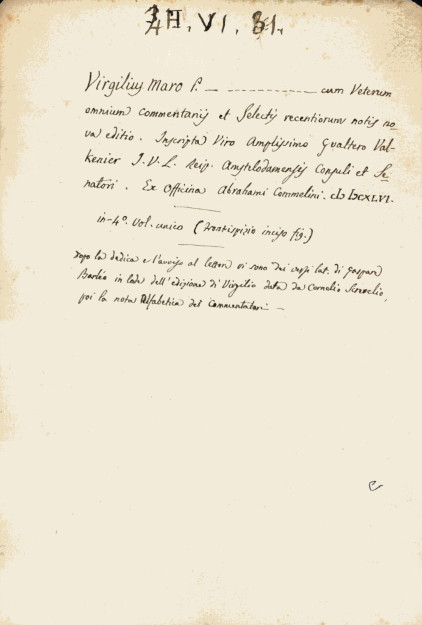 H. VI. 31.
Virgilius Maro P. — — — — — — — — cum Veterum
omnium Commentariis et Selectis recentiorum notis no-
va editio. Inscripta Viro Amplissimo Gualtero Val-
Kenier J. V. L. Reip. Amstelodamensis Consuli et Se-
natori. Ex Officina Abrahami Commelini. cIɔ IɔCXLVI.
in-4º. Vol. unico (frontispizio inciso fig.)
Dopo la dedica e l'avviso al lettore vi sono dei versi lat. di Gaspare
Barleo in lode dell'edizione di Virgilio data da Cornelio Screvelio,
poi la nota Alfabetica dei Commentatori —